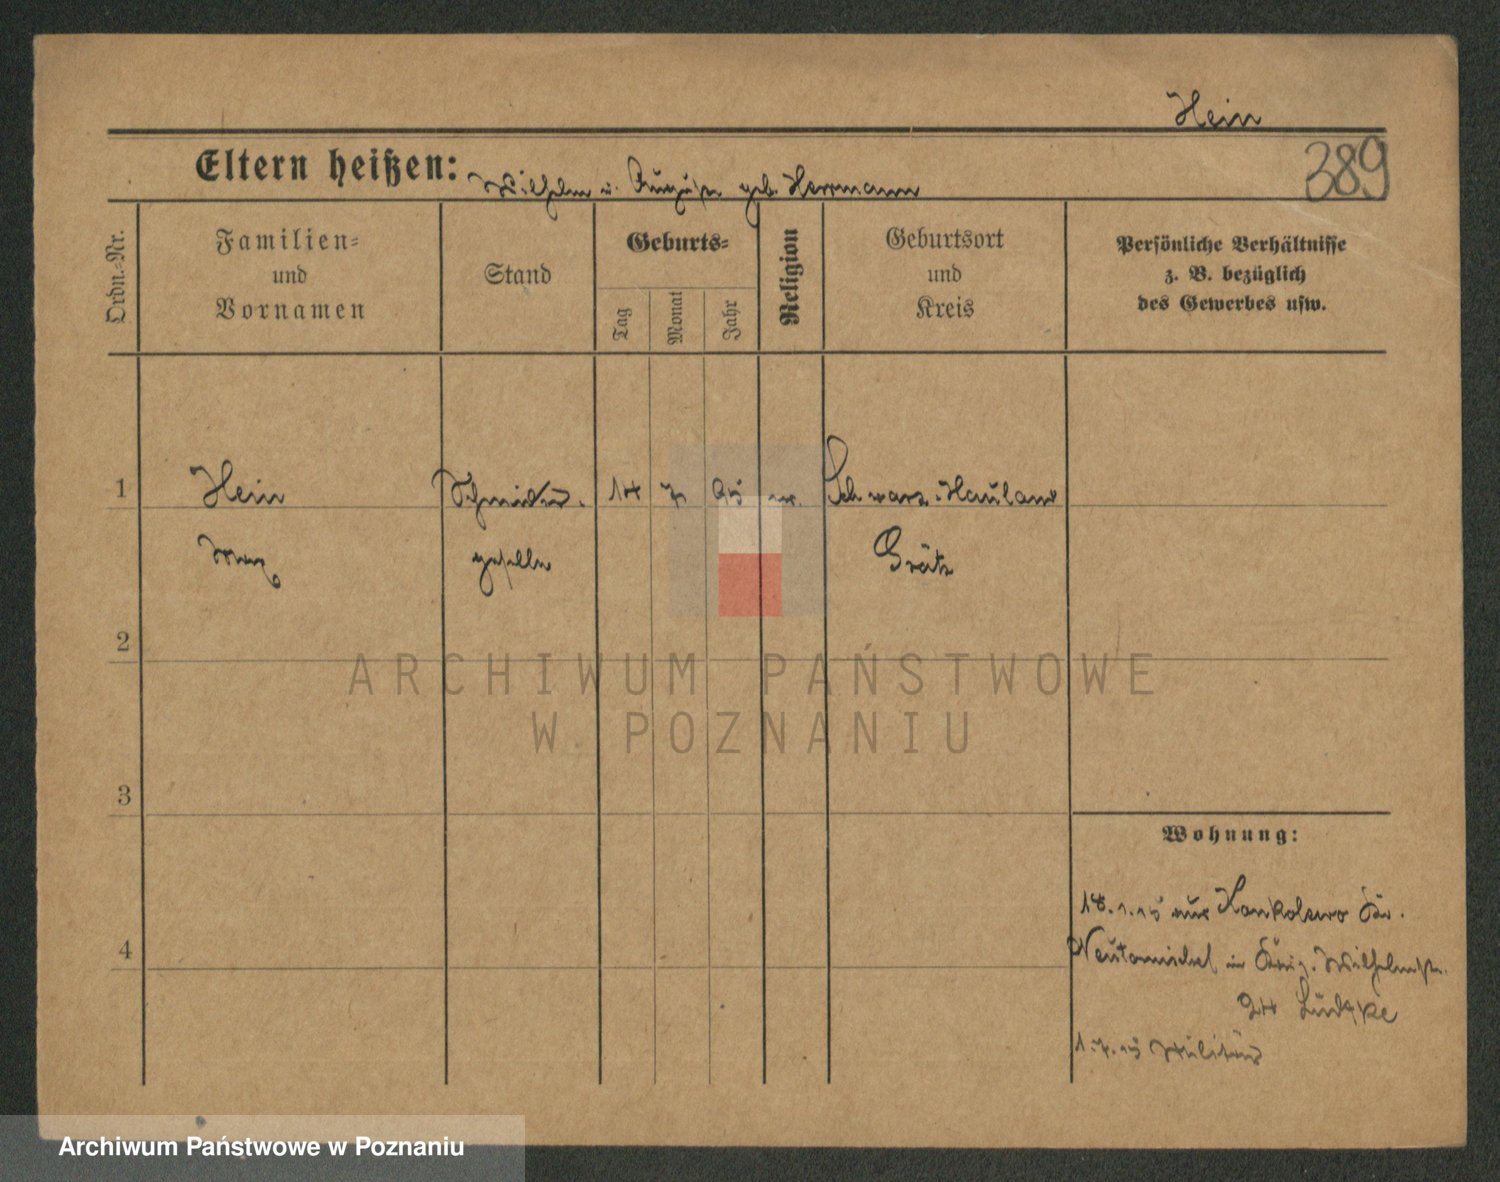 Hein
389
Eltern heißen: Wilhelm u. Auguste geb. Herrmann
Ordn.-Nr.
Familien-
und
Vornamen
Stand
Geburts-
Tag
Monat
Jahr
Religion
Geburtsort
und
Kreis
Persönliche Verhältnisse
z. B. bezüglich
des Gewerbes usw.
1 Hein Schmiede- 14 7 95 ev. Schwarz-Hauland
Max geselle Grätz
2
ARCHIWUM PAŃSTWOWE
W POZNANIU
3
Wohnung:
18.1.15 aus Konkolewo Kr.
4
Neutomischel in Wilhelmstr.
24 Lüdtke
1.7.15 Militär
Archiwum Państwowe w Poznaniu